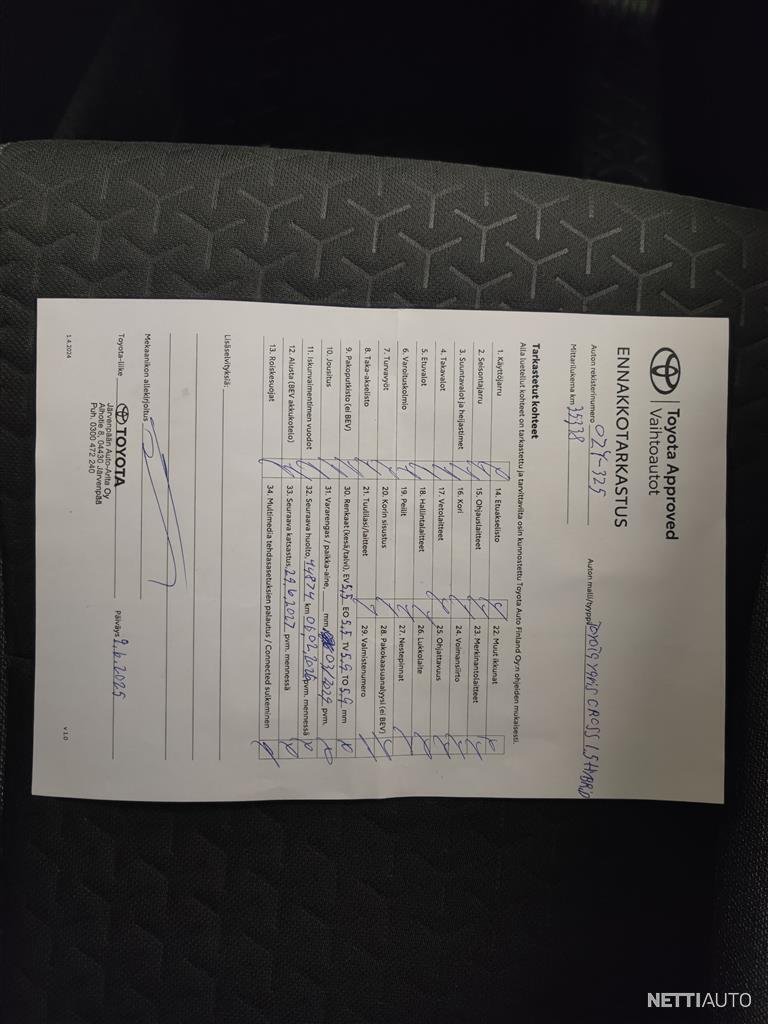 Toyota Approved
Vaihtoautot
ENNAKKOTARKASTUS
Auton rekisterinumero 024-325 Auton malli/tyyppi TOYOTA YARIS CROSS 1,5 HYBRID
Mittarilukema km 35938
Tarkastetut kohteet
Alla luetellut kohteet on tarkastettu ja tarvittavilta osin kunnostettu Toyota Auto Finland Oy:n ohjeiden mukaisesti.
1. Käyttöjarru 14. Etuakselisto 22. Muut ikkunat
2. Seisontajarru 15. Ohjauslaitteet 23. Merkinantolaitteet
3. Suuntavalot ja heijastimet 16. Kori 24. Voimansiirto
4. Takavalot 17. Vetolaitteet 25. Ohjattavuus
5. Etuvalot 18. Hallintalaitteet 26. Lukkolaite
6. Varoituskolmio 19. Peilit 27. Nestepinnat
7. Turvavyöt 20. Korin sisustus 28. Pakokaasuanalyysi (ei BEV)
8. Taka-akselisto 21. Tuulilasi/laitteet 29. Valmistenumero
9. Pakoputkisto (ei BEV) 30. Renkaat (kesä/talvi), EV 5,5 EO 5,5 TV 5,9 TO 5,9 mm
10. Jousitus 31. Vararengas / paikka-aine, mm 03/2029 pvm.
11. Iskunvaimentimen vuodot 32. Seuraava huolto, 44874 km 06.02.2026 pvm. mennessä
12. Alusta (BEV akkukotelo) 33. Seuraava katsastus, 29.6.2027 pvm. mennessä
13. Roiskesuojat 34. Multimedia tehdasasetuksien palautus / Connected sulkeminen
Lisäselvityksiä:
Mekaanikon allekirjoitus
Toyota-liike TOYOTA Päiväys 2.6.2025
Järvenpään Auto-Arita Oy
Alhotie 8, 04430 Järvenpää
Puh. 0300 472 240
1.4.2024 v 1.0
NETTIAUTO